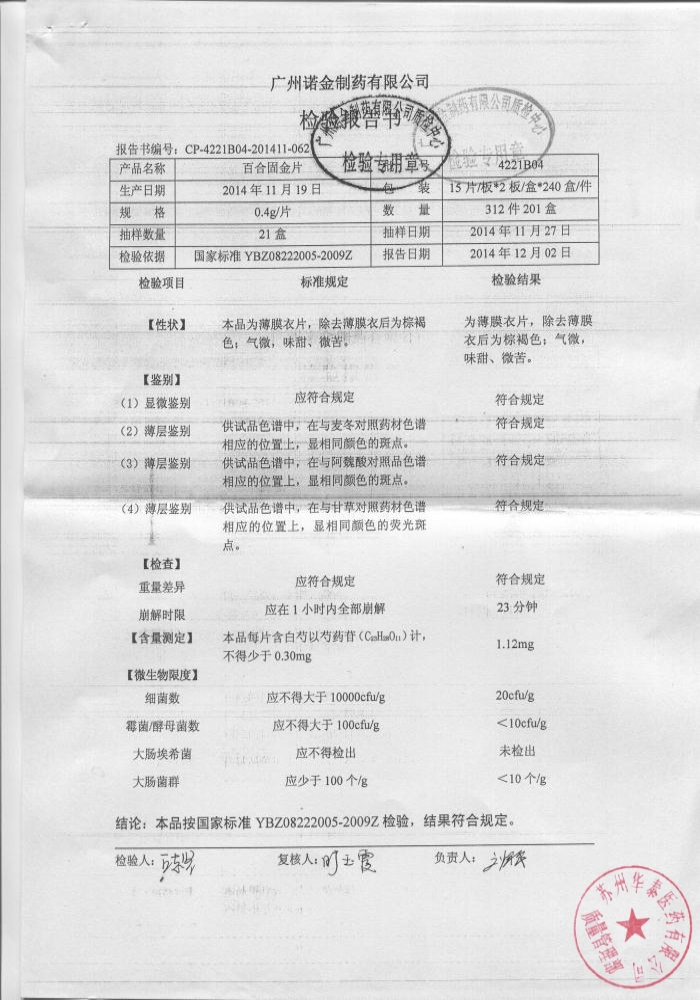 广州诺金制药有限公司
检验报告书
报告书编号：CP-4221B04-201411-062
检验专用章
检验专用章
产品名称 百合固金片 号 4221B04
生产日期 2014年11月19日 包 装 15片/板*2板/盒*240盒/件
规 格 0.4g/片 数 量 312件201盒
抽样数量 21盒 抽样日期 2014年11月27日
检验依据 国家标准YBZ08222005-2009Z 报告日期 2014年12月02日
检验项目 标准规定 检验结果
【性状】 本品为薄膜衣片，除去薄膜衣后为棕褐 为薄膜衣片，除去薄膜
色；气微，味甜、微苦。 衣后为棕褐色；气微，
味甜、微苦。
【鉴别】
（1）显微鉴别 应符合规定 符合规定
（2）薄层鉴别 供试品色谱中，在与麦冬对照药材色谱 符合规定
相应的位置上，显相同颜色的斑点。
（3）薄层鉴别 供试品色谱中，在与阿魏酸对照品色谱 符合规定
相应的位置上，显相同颜色的斑点。
（4）薄层鉴别 供试品色谱中，在与甘草对照药材色谱 符合规定
相应的位置上，显相同颜色的荧光斑
点。
【检查】
重量差异 应符合规定 符合规定
崩解时限 应在1小时内全部崩解 23分钟
【含量测定】 本品每片含白芍以芍药苷（C₂₃H₂₈O₁₁）计， 1.12mg
不得少于0.30mg
【微生物限度】
细菌数 应不得大于10000cfu/g 20cfu/g
霉菌/酵母菌数 应不得大于100cfu/g ＜10cfu/g
大肠埃希菌 应不得检出 未检出
大肠菌群 应少于100个/g ＜10个/g
结论：本品按国家标准YBZ08222005-2009Z检验，结果符合规定。
检验人： 复核人： 负责人：
苏州华泰医药有限公司
质量管理部